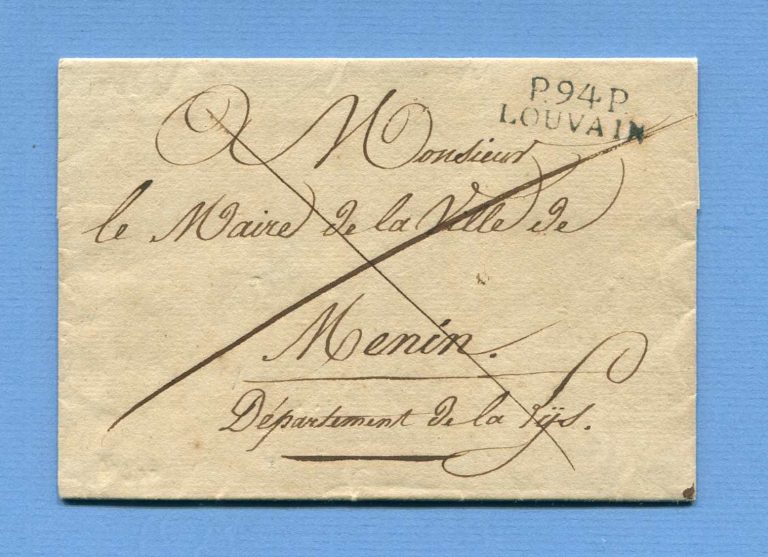 P.94.P.
LOUVAIN
A Monsieur
le Maire de la Ville de
Menin.
Département de la Lÿs.